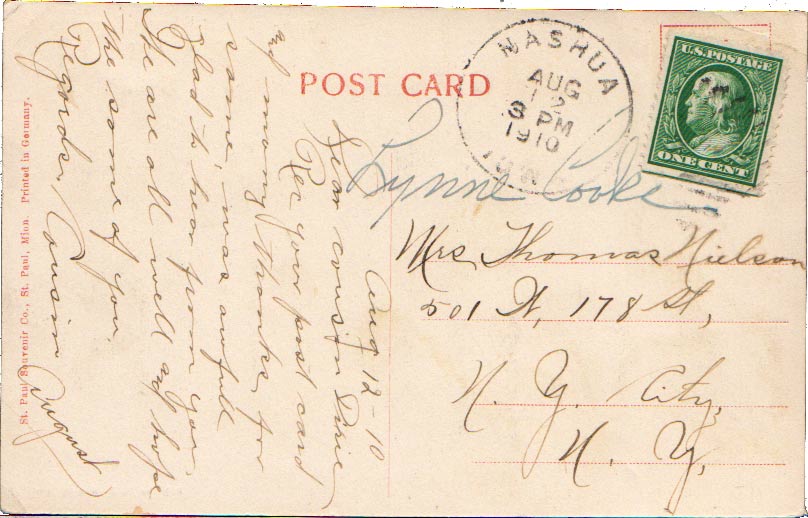 POST CARD
NASHUA
AUG
12
3 PM
1910
IOWA
U.S. POSTAGE
ONE CENT
Lynne Cooke
Mrs Thomas Nielson
501 W, 178 St,
N. Y. City,
N. Y,
Aug 12-10
Dear cousin
Rec your post card
and many thanks for
same, was awfull
glad to hear from you.
We are all well and hope
the same of you.
Regards, Cousin August
St. Paul Souvenir Co., St. Paul, Minn. Printed in Germany.